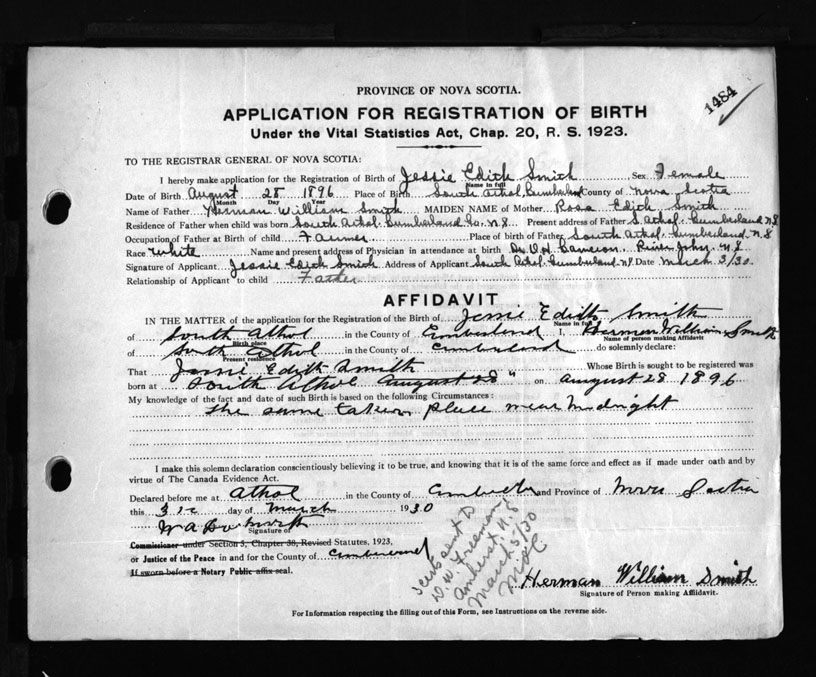 1484
PROVINCE OF NOVA SCOTIA.
APPLICATION FOR REGISTRATION OF BIRTH
Under the Vital Statistics Act, Chap. 20, R. S. 1923.
TO THE REGISTRAR GENERAL OF NOVA SCOTIA:
I hereby make application for the Registration of Birth of Jessie Edith Smith Sex Female
Name in full
Date of Birth August 28 1896 Place of Birth South Athol, Cumberland County of Nova Scotia
Month Day Year
Name of Father Herman William Smith MAIDEN NAME of Mother Rosa Edith Smith
Residence of Father when child was born South Athol Cumberland Co. N.S Present address of Father S. Athol Cumberland N.S
Occupation of Father at Birth of child Farmer Place of Birth of Father South Athol Cumberland N.S
Race White Name and present address of Physician in attendance at birth Dr. Cameron River John N.S
Signature of Applicant Jessie Edith Smith Address of Applicant South Athol Cumberland N.S Date March 3/30
Relationship of Applicant to child Father
AFFIDAVIT
IN THE MATTER of the application for the Registration of the Birth of Jessie Edith Smith
Name in full
of South Athol in the County of Cumberland I, Herman William Smith
Birth place Name of person making Affidavit
of South Athol in the County of Cumberland do solemnly declare:
Present residence
That Jessie Edith Smith Whose Birth is sought to be registered was
born at South Athol August 28 " on August 28 1896
My knowledge of the fact and date of such Birth is based on the following Circumstances:
The same taken place near Midnight
I make this solemn declaration conscientiously believing it to be true, and knowing that it is of the same force and effect as if made under oath and by
virtue of The Canada Evidence Act.
Declared before me at Athol in the County of Cumberland and Province of Nova Scotia
this day of March 1930
Signature of
Commissioner under Section 3, Chapter 38, Revised Statutes, 1923,
or Justice of the Peace in and for the County of Cumberland
If sworn before a Notary Public affix seal.
sent to
D W Freeman
Amherst, N.S
March 5/30
Herman William Smith
Signature of Person making Affidavit.
For Information respecting the filling out of this Form, see Instructions on the reverse side.